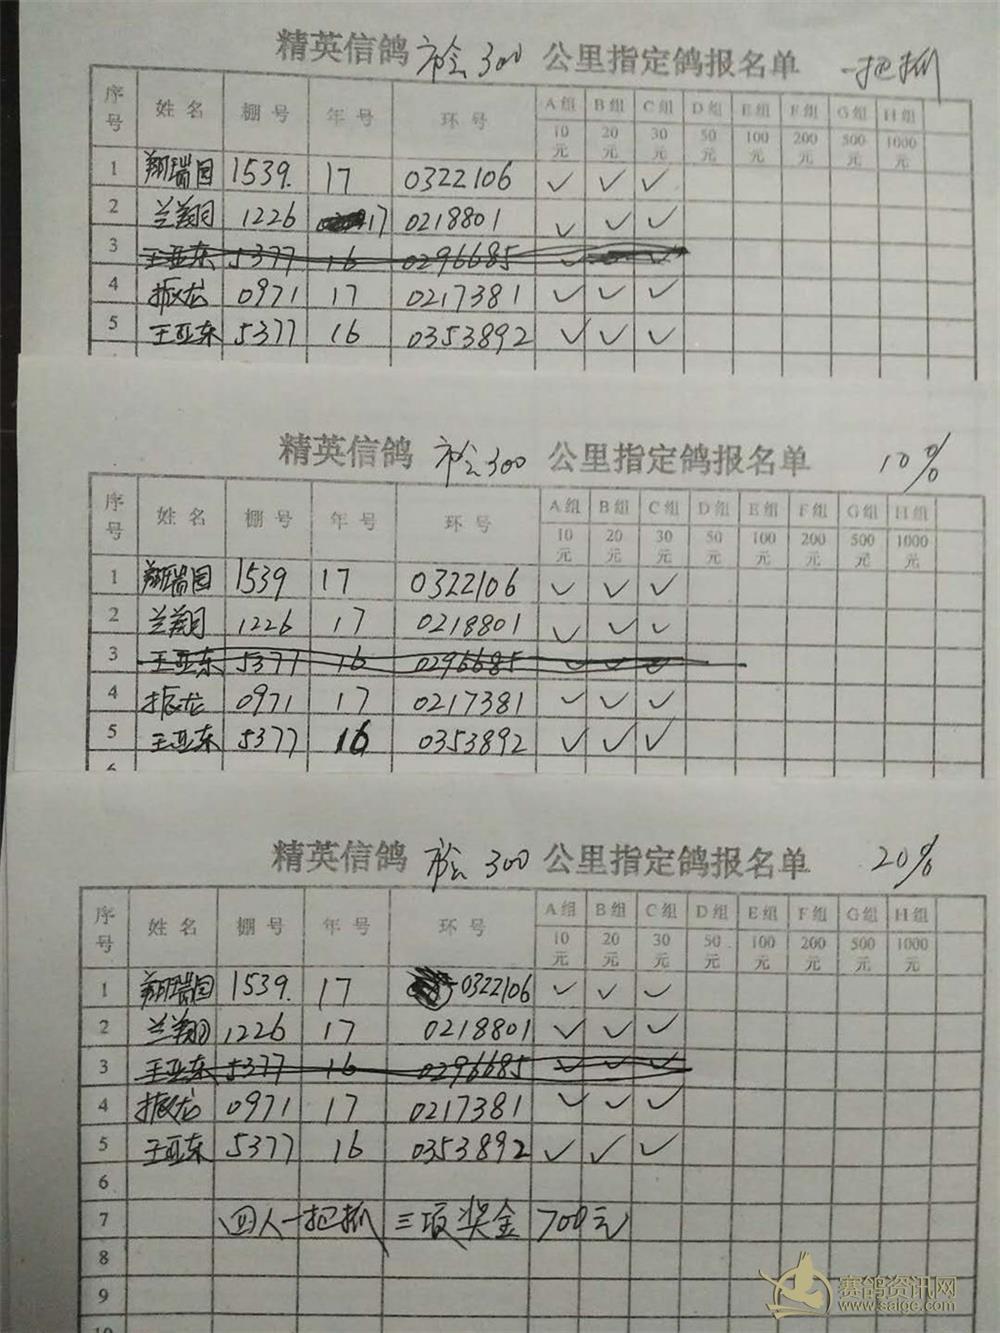 精英信鸽 市会300 公里指定鸽报名单 一把抓
序号 姓名 棚号 年号 环号 A组 B组 C组 D组 E组 F组 G组 H组
10元 20元 30元 50元 100元 200元 500元 1000元
1 翔瑞园 1539. 17 0322106 ✓ ✓ ✓
2 兰翔 1226 17 0218801 ✓ ✓ ✓
3 王亚东 5377 16 0296685 ✓ ✓ ✓
4 振龙 0971 17 0217381 ✓ ✓ ✓
5 王亚东 5377 16 0353892 ✓ ✓ ✓
精英信鸽 市会300 公里指定鸽报名单 10%
序号 姓名 棚号 年号 环号 A组 B组 C组 D组 E组 F组 G组 H组
10元 20元 30元 50元 100元 200元 500元 1000元
1 翔瑞园 1539 17 0322106 ✓ ✓ ✓
2 兰翔 1226 17 0218801 ✓ ✓ ✓
3 王亚东 5377 16 0296685 ✓ ✓ ✓
4 振龙 0971 17 0217381 ✓ ✓ ✓
5 王亚东 5377 16 0353892 ✓ ✓ ✓
6
精英信鸽 市会300 公里指定鸽报名单 20%
序号 姓名 棚号 年号 环号 A组 B组 C组 D组 E组 F组 G组 H组
10元 20元 30元 50元 100元 200元 500元 1000元
1 翔瑞园 1539. 17 0322106 ✓ ✓ ✓
2 兰翔 1226 17 0218801 ✓ ✓ ✓
3 王亚东 5377 16 0296685 ✓ ✓ ✓
4 振龙 0971 17 0217381 ✓ ✓ ✓
5 王亚东 5377 16 0353892 ✓ ✓ ✓
6
7 四人一把抓 三项奖金 700元
8
9
10
赛鸽资讯网
www.saige.com